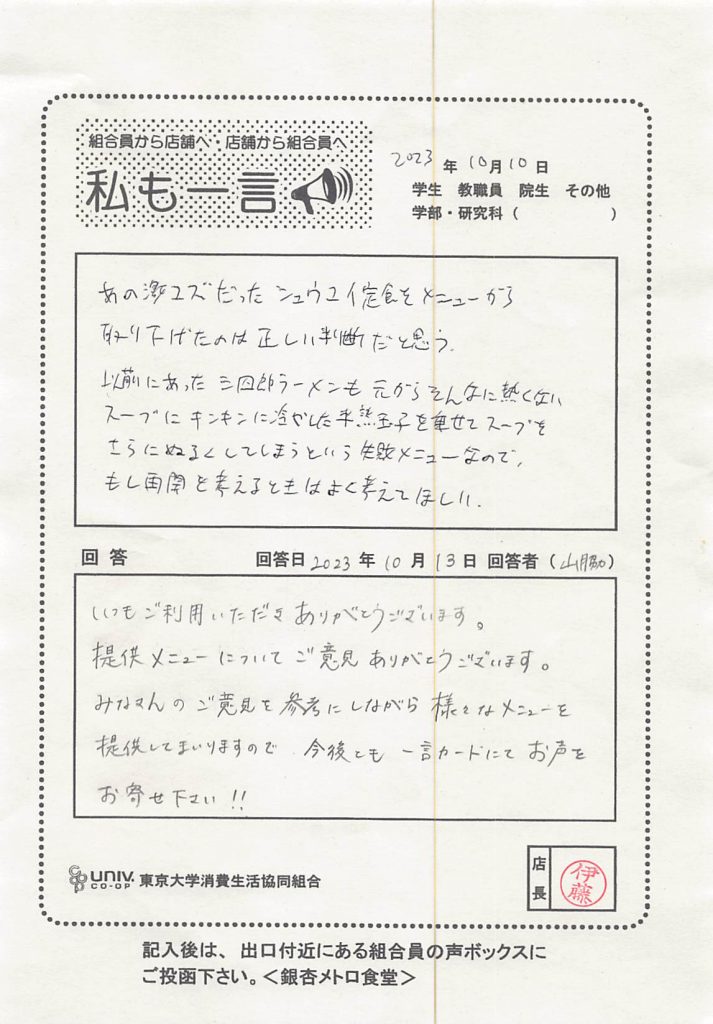 組合員から店舗へ・店舗から組合員へ
私も一言
2023年10月10日
学生 教職員 院生 その他
学部・研究科( )
あの激マズだったシュウユイ定食をメニューから
取り下げたのは正しい判断だと思う。
以前にあった三四郎ラーメンも元からそんなに熱くない
スープにキンキンに冷やした半熟玉子を乗せてスープを
さらにぬるくしてしまうという失敗メニューなので、
もし再開を考えるときはよく考えてほしい。
回答 回答日2023年10月13日 回答者(山脇)
いつもご利用いただきありがとうございます。
提供メニューについてご意見ありがとうございます。
みなさんのご意見を参考にしながら様々なメニューを
提供してまいりますので 今後とも一言カードにてお声を
お寄せ下さい!!
UNIV. CO-OP 東京大学消費生活協同組合
店長 伊藤
記入後は、出口付近にある組合員の声ボックスに
ご投函下さい。<銀杏メトロ食堂>